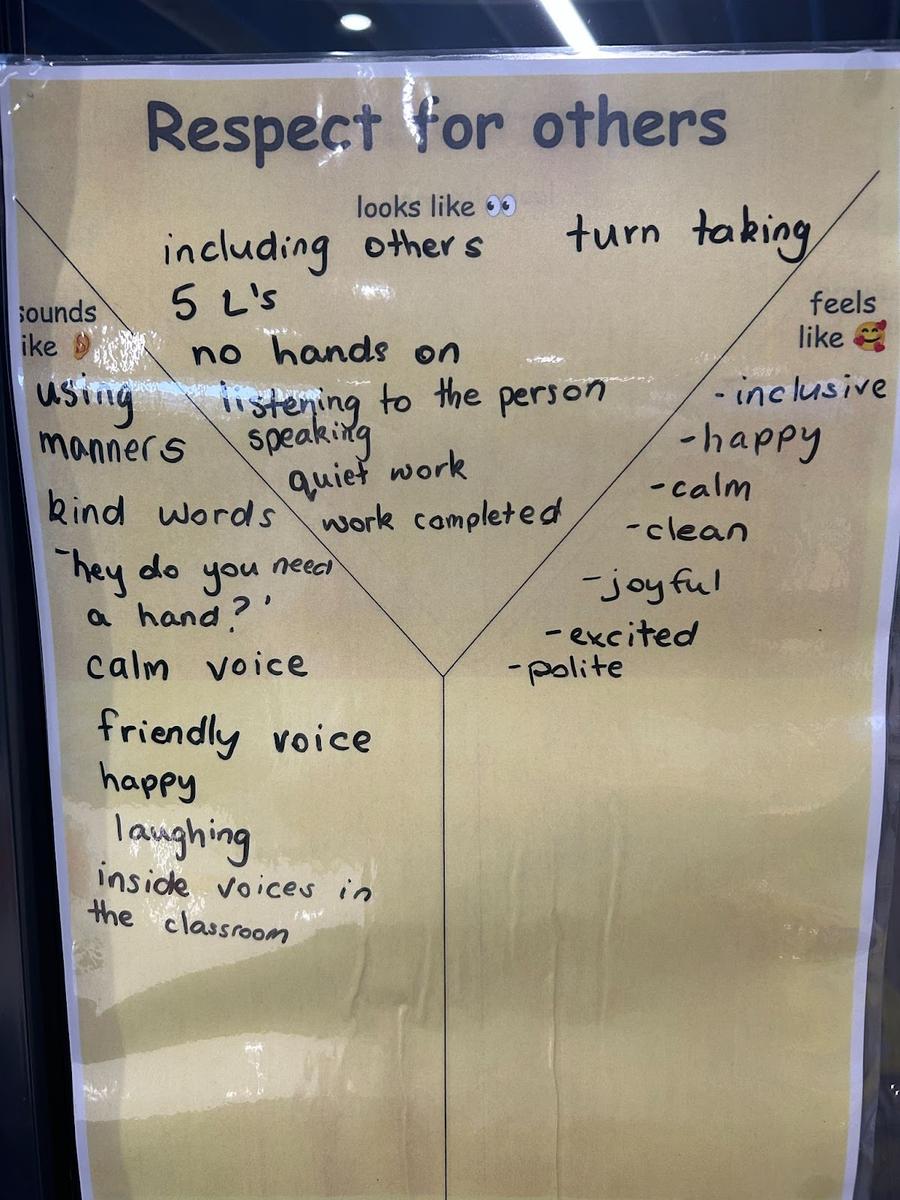 Respect for others
looks like 👀
including others
turn taking
5 L's
no hands on
listening to the person
speaking
quiet work
work completed
sounds
like 👂
using
manners
kind words
"hey do you need
a hand?'
calm voice
friendly voice
happy
laughing
inside voices in
the classroom
feels
like 🥰
- inclusive
- happy
- calm
- clean
- joyful
- excited
- polite